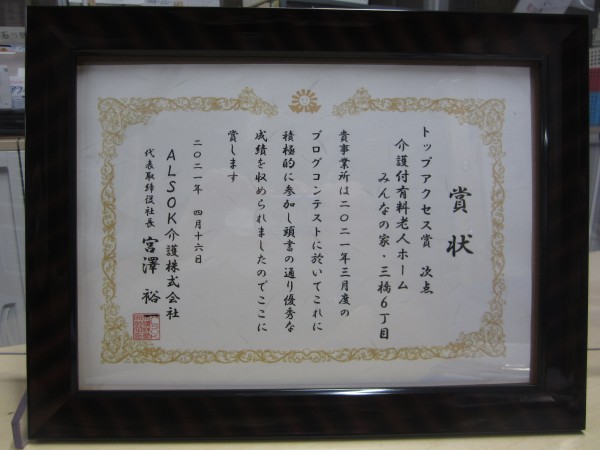 賞状
トップアクセス賞 次点
介護付有料老人ホーム
みんなの家・三橋6丁目
貴事業所は二〇二一年三月度の
ブログコンテストに於いてこれに
積極的に参加し頭書の通り優秀な
成績を収められましたのでここに
賞します
二〇二一年 四月十六日
ALSOK介護株式会社
代表取締役社長 宮澤 裕